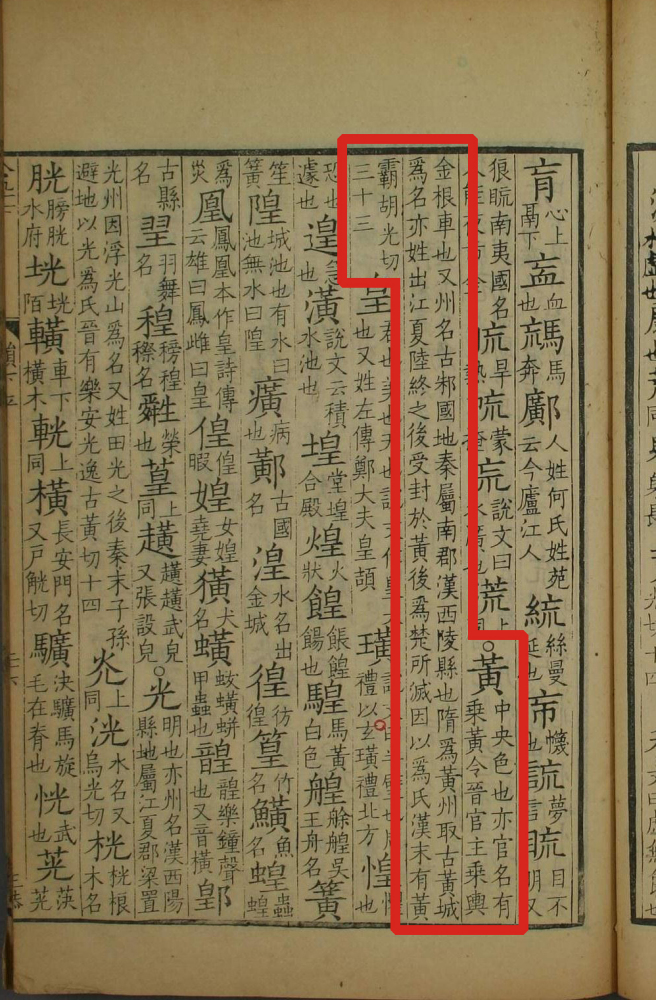 肓心上鬲下衁血也馬奔鄺人姓何氏姓苑云今廬江人絲曼延也幭也詤夢言䀮目不明又
狼䀮南夷國名人能夜市金旱熱蒙掩巟說文曰水廣也上同○黃中央色也亦官名有乘黃令晉官主乘輿
金根車也又州名古邾國地秦屬南郡漢西陵縣也隋為黃州取古黃城為名亦姓出江夏陸終之後受封於黃後為楚所滅因以為氏漢末有黃
霸胡光切三十三皇君也美也天也說文作皇大也又姓左傳鄭大夫皇頡璜說文曰半璧也周禮以玄璜禮北方惶懼也
恐也遽也遑急也潢說文云積水池也堭堂堭合殿煌火狀餭餦餭餳也騜馬黃白色艎艅艎吳王舟名簧
笙簧隍城池也有水曰池無水曰隍癀病也古國名湟水名出金城徨彷徨篁竹名鱑魚名蝗蟲蝗
為災凰鳳凰本作皇詩傳云雄曰鳳雌曰皇偟偟暇媓女媓堯妻獚犬名蟥蛂蟥蛢甲蟲也韹韹樂鐘聲也又音橫
古縣名羽舞名穄名榮也葟上同趪趪趪武皃又張設皃○光明也亦州名漢西陽縣地屬江夏郡梁置
光州因浮光山為名又姓田光之後秦末子孫避地以光為氏晉有樂安光逸古黃切十四灮上同洸水名又烏光切桄桄桹木名
胱膀胱水府垙垙陌車下橫木上同橫長安門名又戶觥切馬旋毛在脊也恍武也茪茪